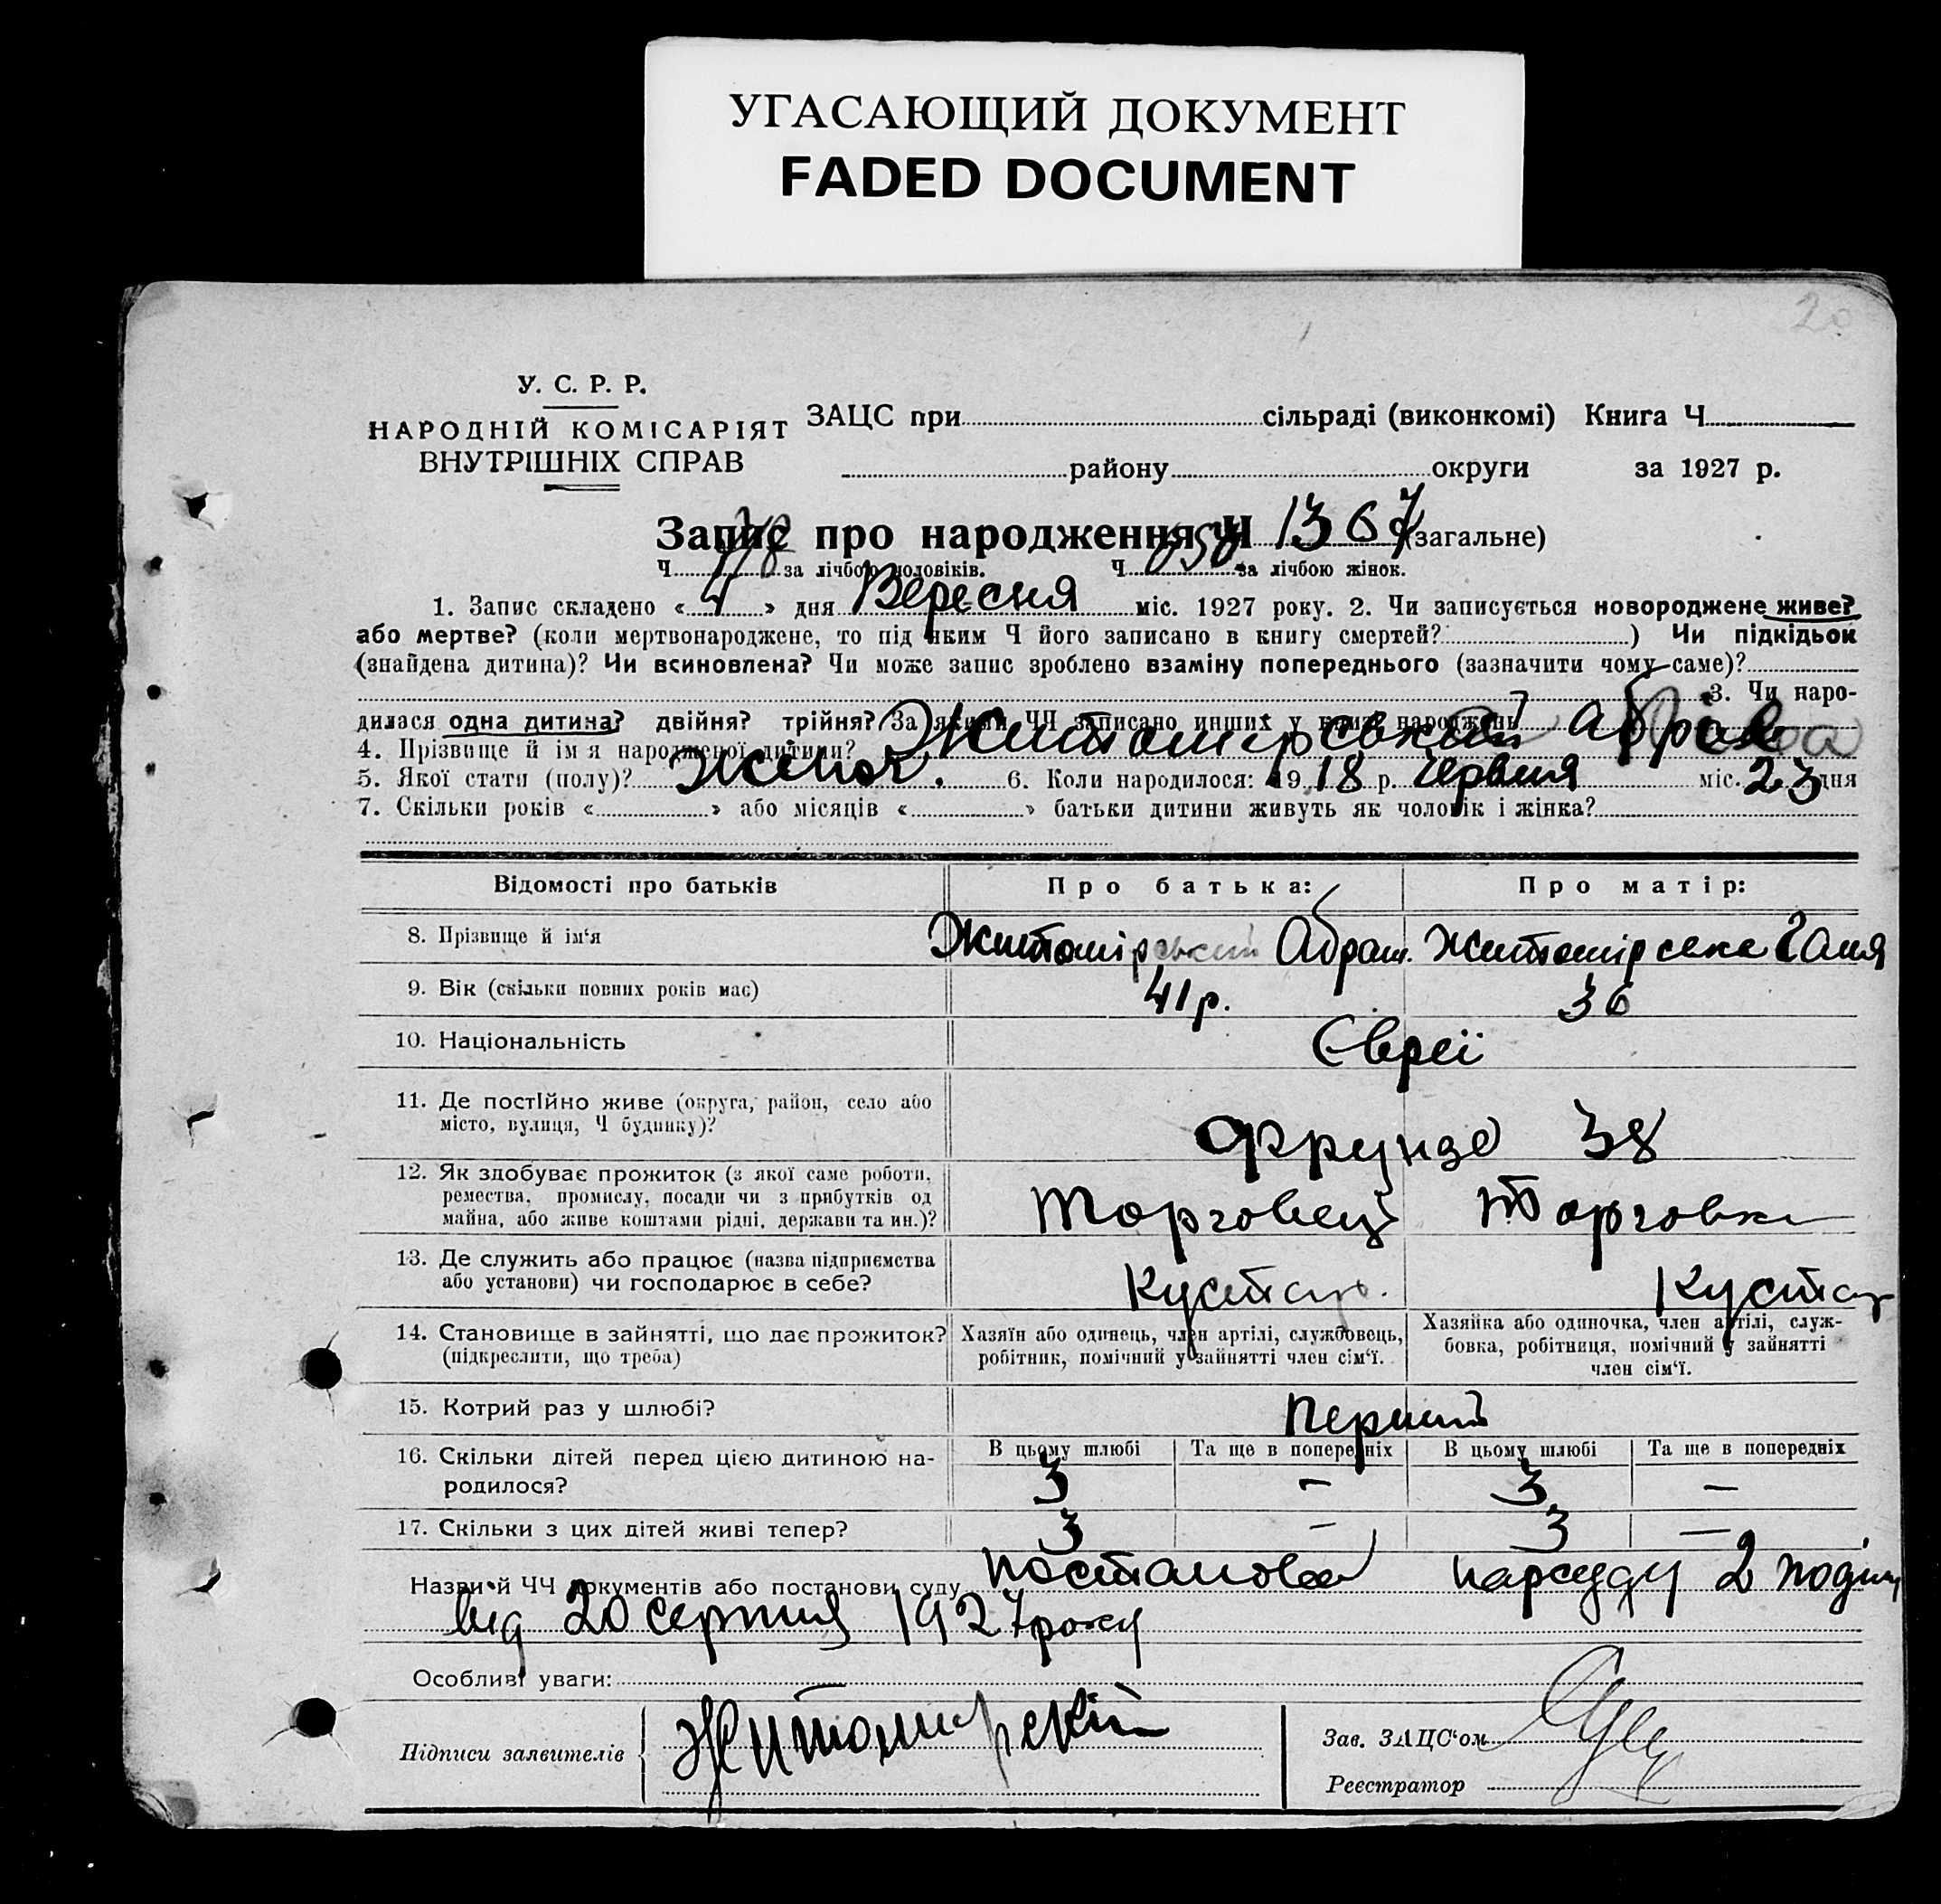 УГАСАЮЩИЙ ДОКУМЕНТ
FADED DOCUMENT
20
У. С. Р. Р.
НАРОДНІЙ КОМІСАРІЯТ
ВНУТРІШНІХ СПРАВ
ЗАЦС при сільраді (виконкомі) Книга Ч
району округи за 1927 р.
Запис про народження Ч 1367 (загальне)
Ч за лічбою чоловіків. Ч за лічбою жінок.
1. Запис складено « 4 » дня Вересня міс. 1927 року. 2. Чи записується новороджене живе?
або мертве? (коли мертвонароджене, то під яким Ч його записано в книгу смертей? ) Чи підкідьок
(знайдена дитина)? Чи всиновлена? Чи може запис зроблено взаміну попереднього (зазначити чому саме)?
3. Чи наро-
дилася одна дитина? двійня? трійня? За якими ЧЧ записано инших у книзі народжень
4. Прізвище й ім'я народженої дитини? Житомірський
5. Якої стати (полу)? жіноч. 6. Коли народилося: 1918 р. червня міс. 23 дня
7. Скільки років « » або місяців « » батьки дитини живуть як чоловік і жінка?
Відомості про батьків Про батька: Про матір:
8. Прізвище й ім'я Житомірський Абрам. Житомірська Галя
9. Вік (скільки повних років має) 41 р. 36
10. Національність Євреї
11. Де постійно живе (округа, район, село або
місто, вулиця, Ч будинку)? Фрунзе 38
12. Як здобуває прожиток (з якої саме роботи,
ремества, промислу, посади чи з прибутків од
майна, або живе коштами рідні, держави та ин.)? Торговець Торговка
13. Де служить або працює (назва підприємства
або установи) чи господарює в себе? Кустар. Кустар
14. Становище в зайнятті, що дає прожиток?
(підкреслити, що треба)
Хазяїн або одинець, член артілі, службовець,
робітник, помічний у зайнятті член сім'ї.
Хазяйка або одиночка, член артілі, служ-
бовка, робітниця, помічний у зайнятті
член сім'ї.
15. Котрий раз у шлюбі? Перший
16. Скільки дітей перед цією дитиною на-
родилося?
В цьому шлюбі Та ще в попередніх В цьому шлюбі Та ще в попередніх
3 — 3 —
17. Скільки з цих дітей живі тепер? 3 — 3 —
Назви й ЧЧ документів або постанови суду постанова нарсуду 2
від 20 серпня 1927 року
Особливі уваги:
Підписи заявителів Житомирский
Зав. ЗАЦС'ом
Реєстратор